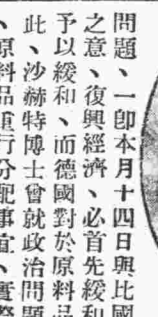 問題、一卽本月十四日與比國
之意、復興經濟、必首先緩和
予以緩和、而德國對於原料品
此、沙赫特博士曾就政治問題
、原料品重行分配事宜、實際